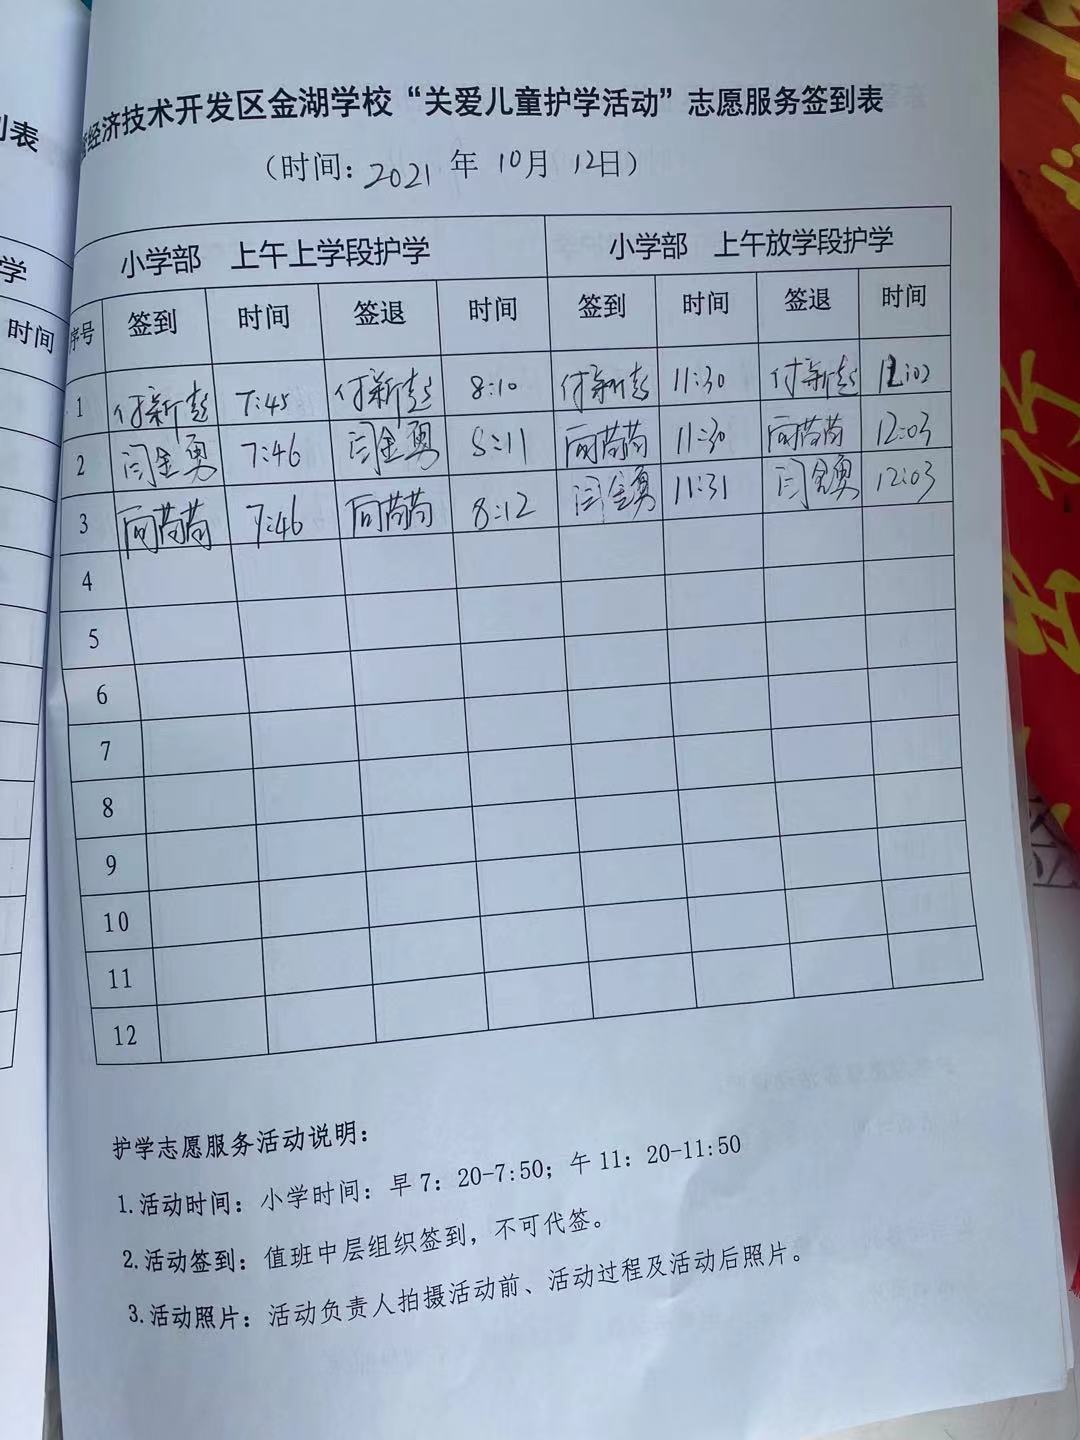 列表
学
时间
经济技术开发区金湖学校“关爱儿童护学活动”志愿服务签到表
（时间：2021 年 10月 12日）
小学部 上午上学段护学 小学部 上午放学段护学
序号 签到 时间 签退 时间 签到 时间 签退 时间
1 付新彭 7:45 付新彭 8:10 付新彭 11:30 付新彭 12:02
2 闫金勇 7:46 闫金勇 8:11 11:30 12:03
3 7:46 8:12 闫金勇 11:31 闫金勇 12:03
4
5
6
7
8
9
10
11
12
护学志愿服务活动说明：
1.活动时间：小学时间：早 7：20-7:50；午 11：20-11:50
2.活动签到：值班中层组织签到，不可代签。
3.活动照片：活动负责人拍摄活动前、活动过程及活动后照片。